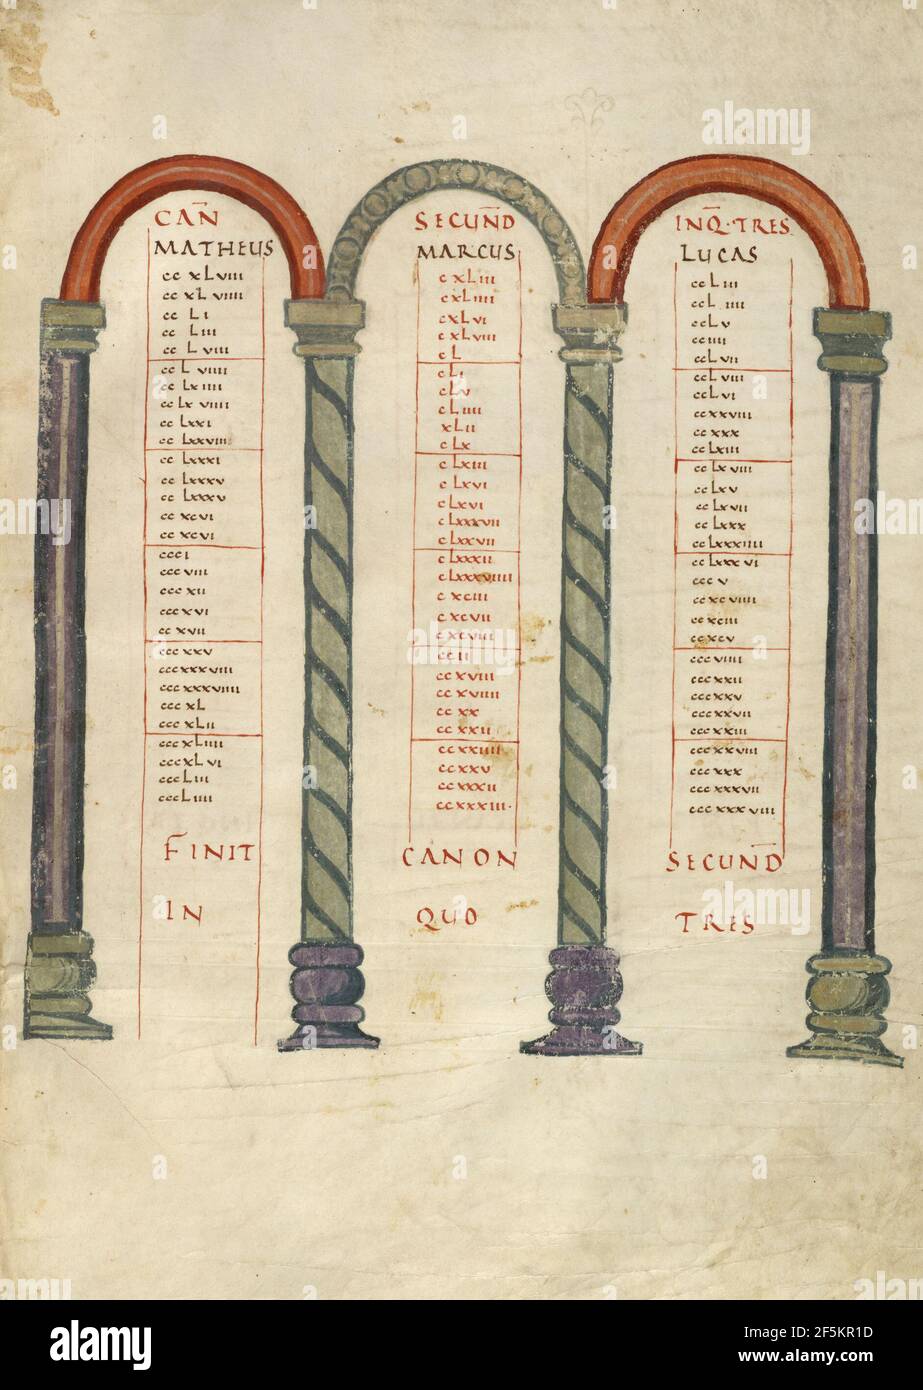 CAN̄
MATHEUS
cc xLviii
cc xL viiii
cc Li
cc Liii
cc L viii
cc L viiii
cc Lx iiii
cc Lx viiii
cc Lxxi
cc Lxxviii
cc Lxxxi
cc Lxxxv
cc Lxxxv
cc xcvi
cc xcvi
ccci
cccviii
ccc xii
cccxvi
cc xvii
cccxxv
cccxxxviii
cccxxxviiii
cccxL
ccc xLii
cccxLiiii
cccxLvi
cccLiii
cccLiiii
FINIT
IN
SECUN̄D
MARCUS
c xLiii
cxLiiii
cxLvi
c xLviii
c L
c Li
c Lv
c Liiii
xLii
c Lx
c Lxiii
c Lxvi
c Lxvi
c Lxxvii
c Lxxvii
c Lxxxii
c Lxxxviiii
c xciii
c xcvii
c xcviii
cc ii
cc xviii
cc xviiii
cc xx
cc xxii
ccxxiiii
ccxxv
ccxxxii
ccxxxiii·
CANON
QUO
INQ̄·TRES
LUCAS
ccLiii
ccL iiii
ccLv
cciiii
ccLvii
ccLviii
ccLvi
ccxxviii
cc xxx
ccLxiii
cc Lx viii
ccLxv
cc Lxvii
cc Lxxx
cc Lxxxiiii
cc Lxxx vi
ccc v
ccxc viiii
cc xciii
cc xcv
cccviiii
cccxxii
cccxxv
cccxxvii
cccxxiii
cccxxviii
ccc xxx
cccxxxvii
cccxxxviii
SECUN̄D
TRES
alamy
Image ID: 2F5KR1D
www.alamy.com